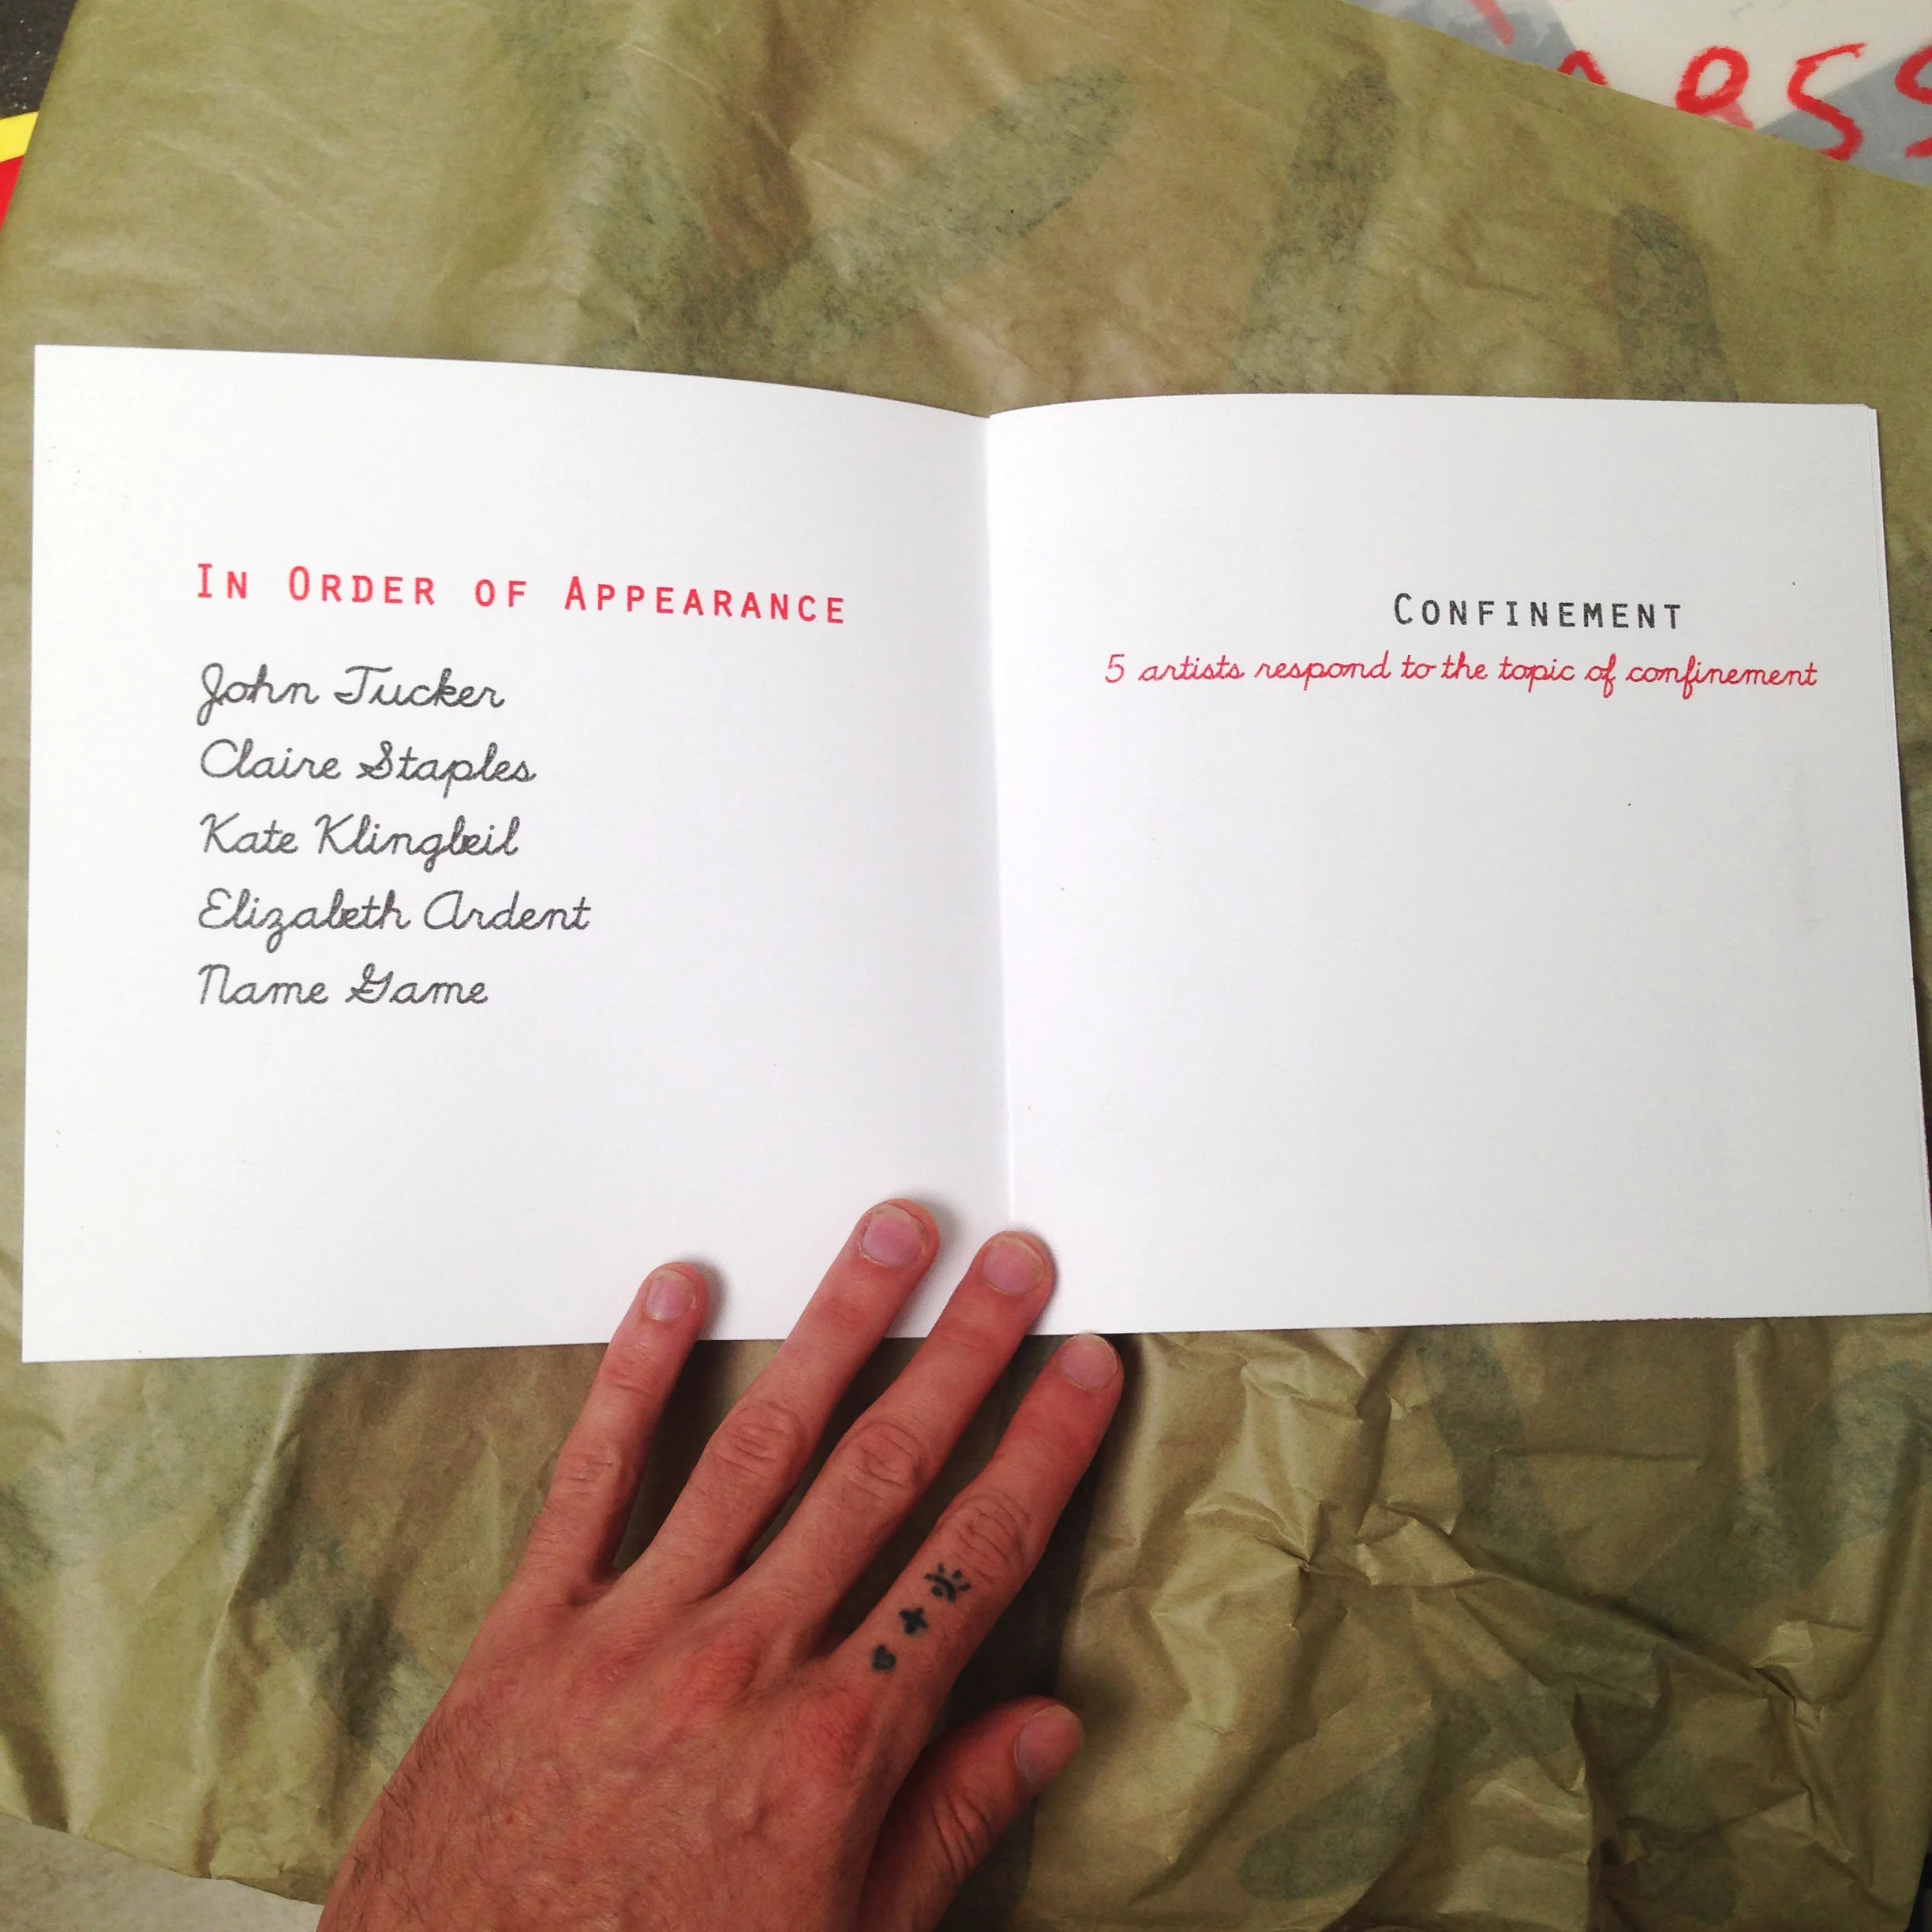 In Order of Appearance
John Tucker
Claire Staples
Kate Klingbeil
Elizabeth Ardent
Name Game
Confinement
5 artists respond to the topic of confinement